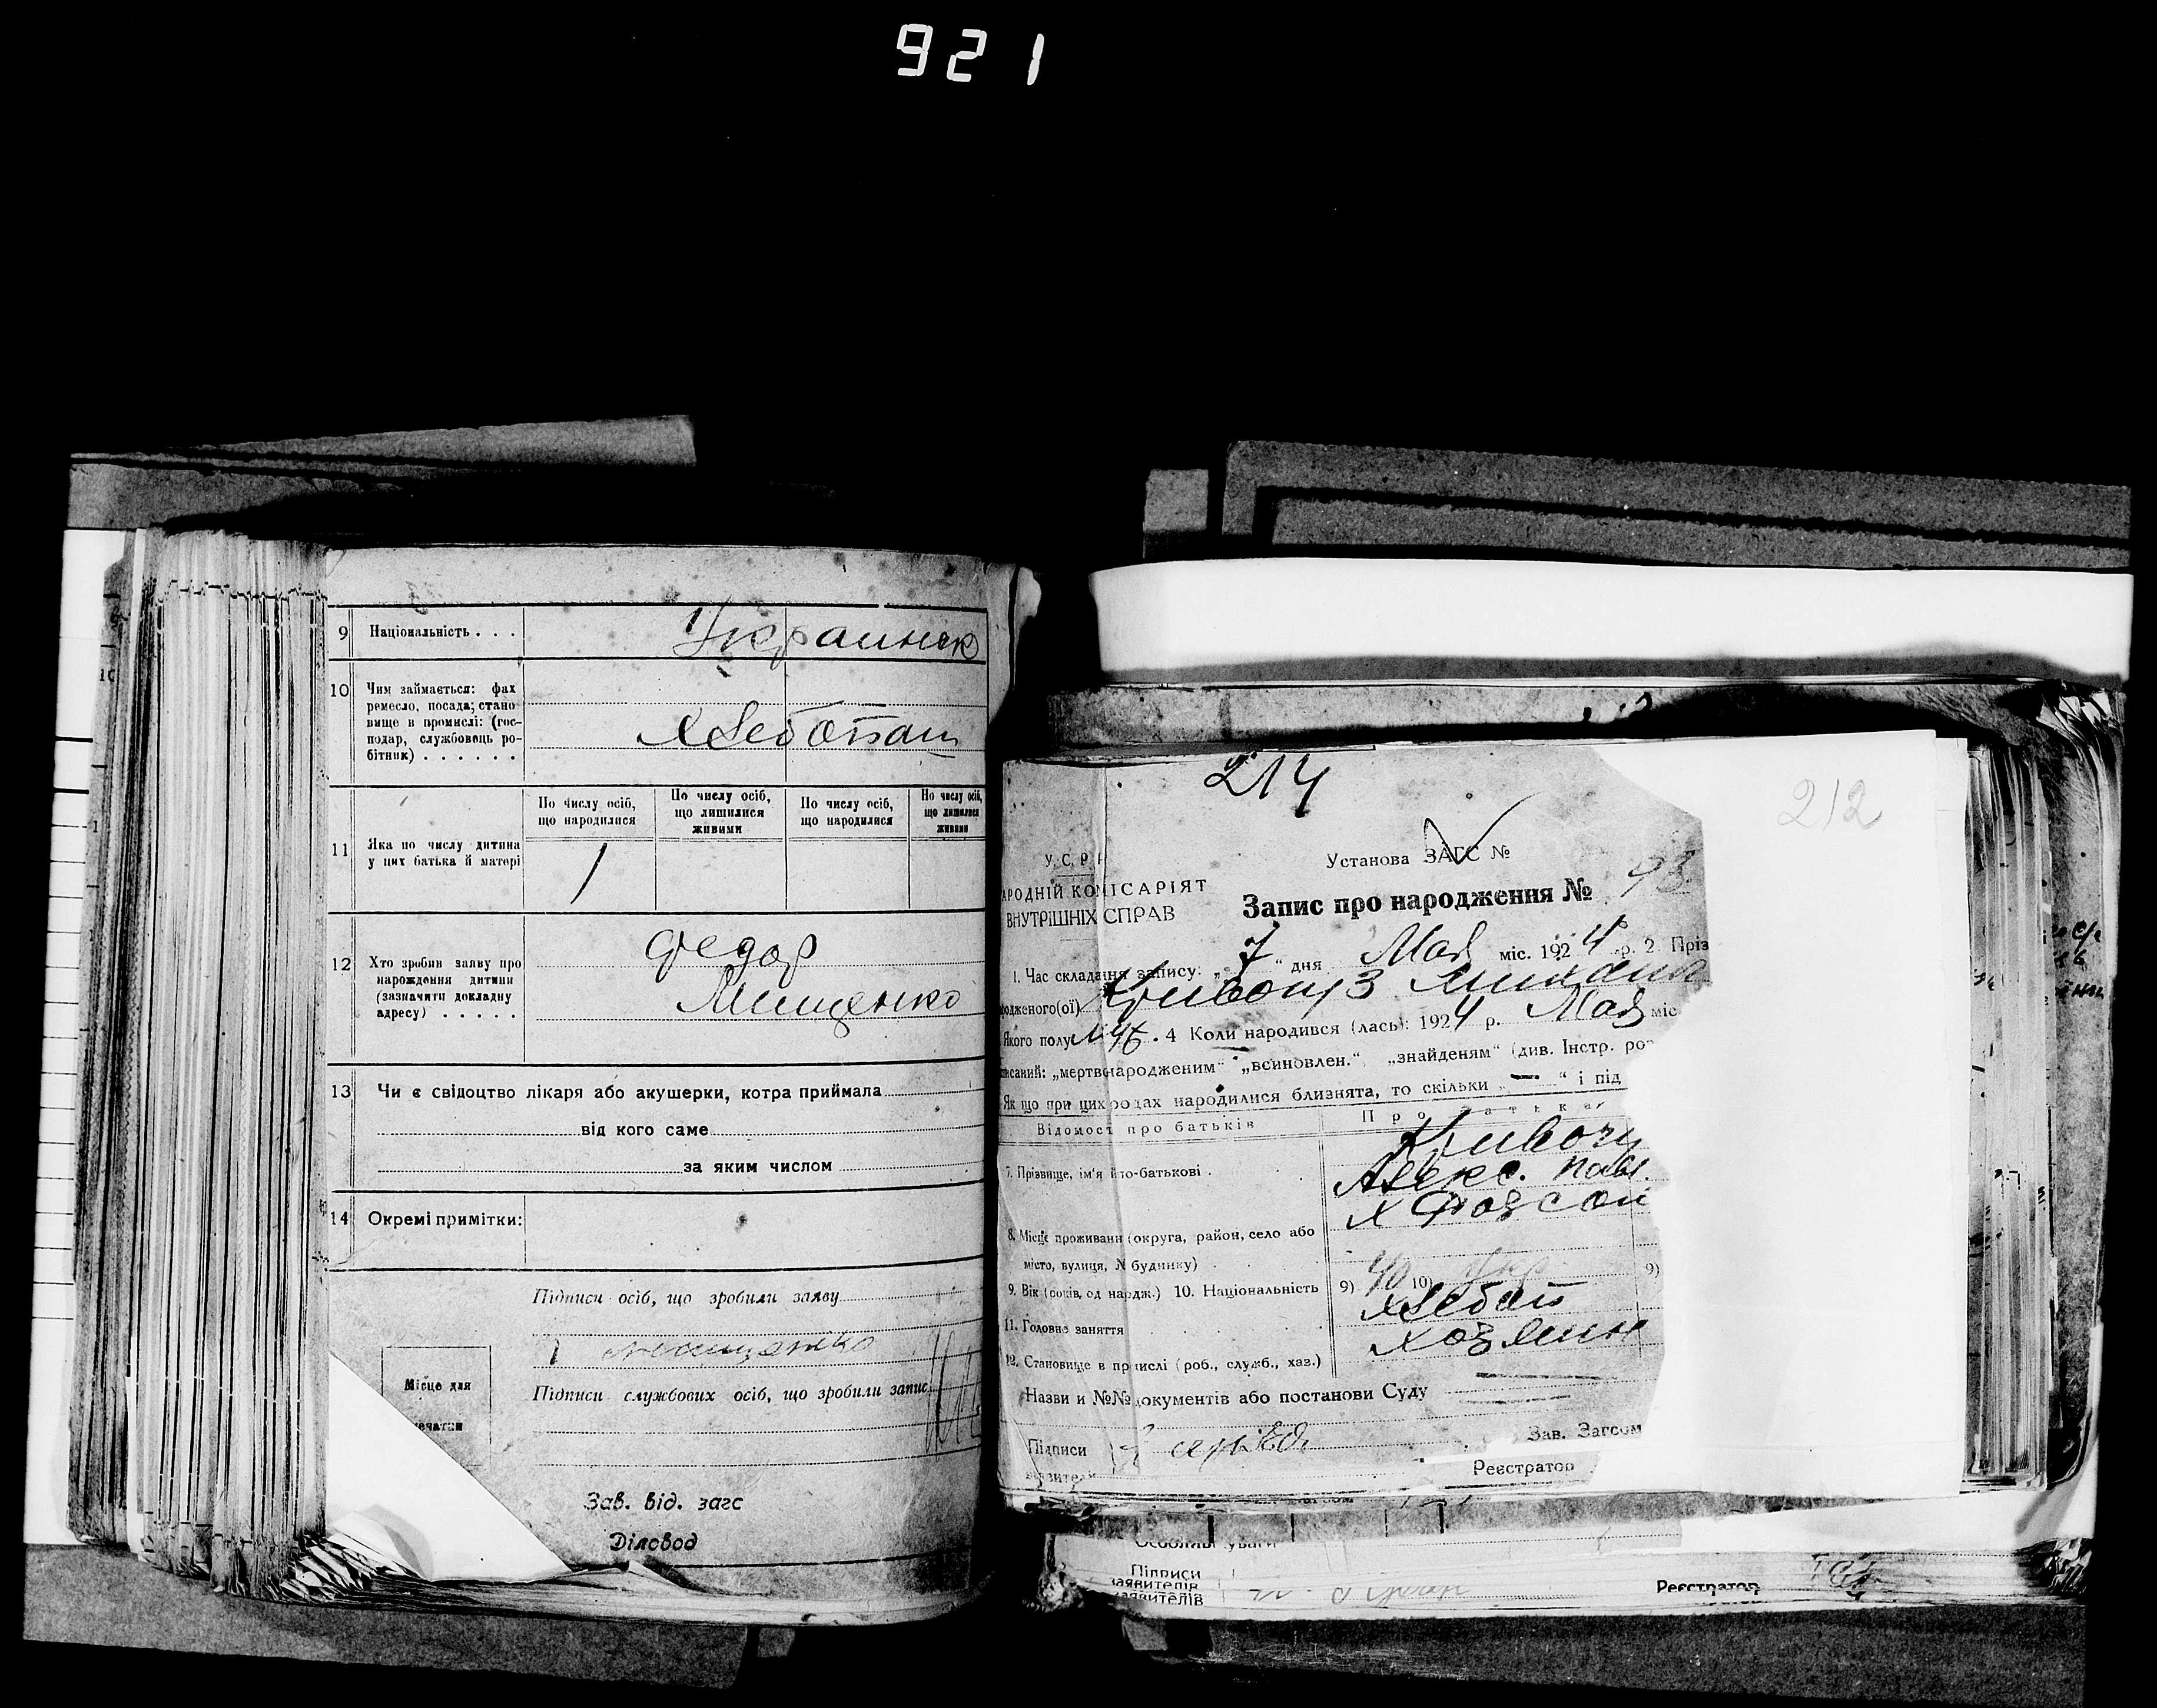 921
9 Національність . . .
Украинск
10 Чим займається: фах
ремесло, посада; стано
вище в промислі: (гос-
подар, службовець ро-
бітник) . . . . . .
Хлебопаш
11 Яка по числу дитина
у цих батька й матері
По числу осіб,
що народилися
По числу осіб,
що лишилися
живими
По числу осіб,
що народилися
По числу осіб,
що лишилися
живими
1
12 Хто зробив заяву про
нарождення дитини
(зазначити докладну
адресу) . . . . .
Федор
Мищенко
13 Чи є свідоцтво лікаря або акушерки, котра приймала
від кого саме
за яким числом
14 Окремі примітки:
Підписи осіб, що зробили заяву
Мищенко
Підписи службових осіб, що зробили запис
Місце для
печатки
Зав. від. загс
Діловод
214
212
У. С. Р. Р
Установа ЗАГС №
АРОДНІЙ КОМІСАРІЯТ
ВНУТРІШНІХ СПРАВ
Запис про народження № 93
1. Час складання запису: „7“ дня Мая міс. 1924 р. 2. Пріз
одженого(ої)
Якого полу Муж. 4 Коли народився (лась): 1924 р. Мая міс
писаний: „мертвнародженим“ „всиновлен.“ „знайденям“ (див. Інстр. роз
Як що при цих родах народилися близнята, то скільки „—“ і під
Відомост про батьків
Про батька
7. Прізвище, ім'я йго-батькові .
Алекс. Павл.
8. Місце проживанн (округа, район, село або
місто, вулиця, № будинку) .
9. Вік (років, од нардж.) 10. Національність
9) 40 10) Укр 9)
11. Головне заняття
Хлебоп
12. Становище в прмислі (роб., служб., хаз.)
Хозяин
Назви и №№ документів або постанови Суду
Підписи
заявителі
Зав. Загсом
Реєстратор
Особливі уваги
Підписи
заявителів
заявителів
Реєстратор